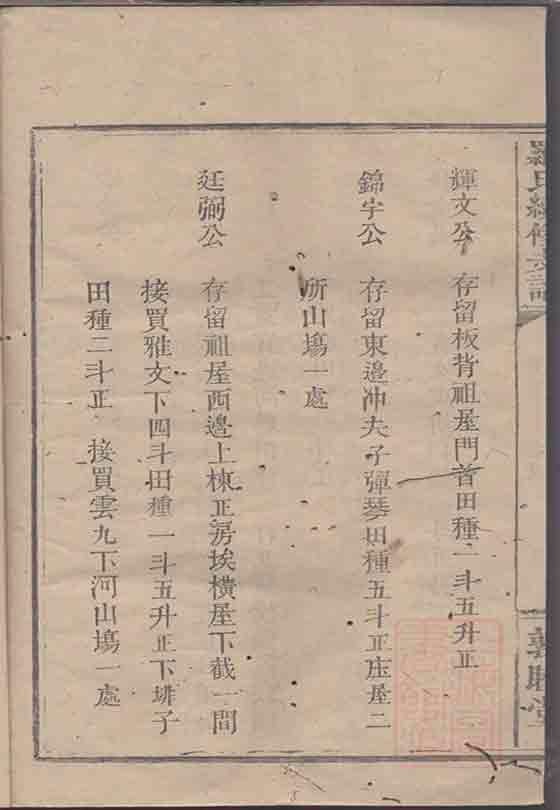 輝文公 存留板背祖屋門首田種一斗五升正
錦字公 存留東邊冲夫子彈琴田種五斗正庄屋二
所山塲一處
廷弼公 存留祖屋西邊上棟正房埃橫屋下截一間
接買雅文下四斗田種一斗五升正下排子
田種二斗正 接買雲九下河山塲一處